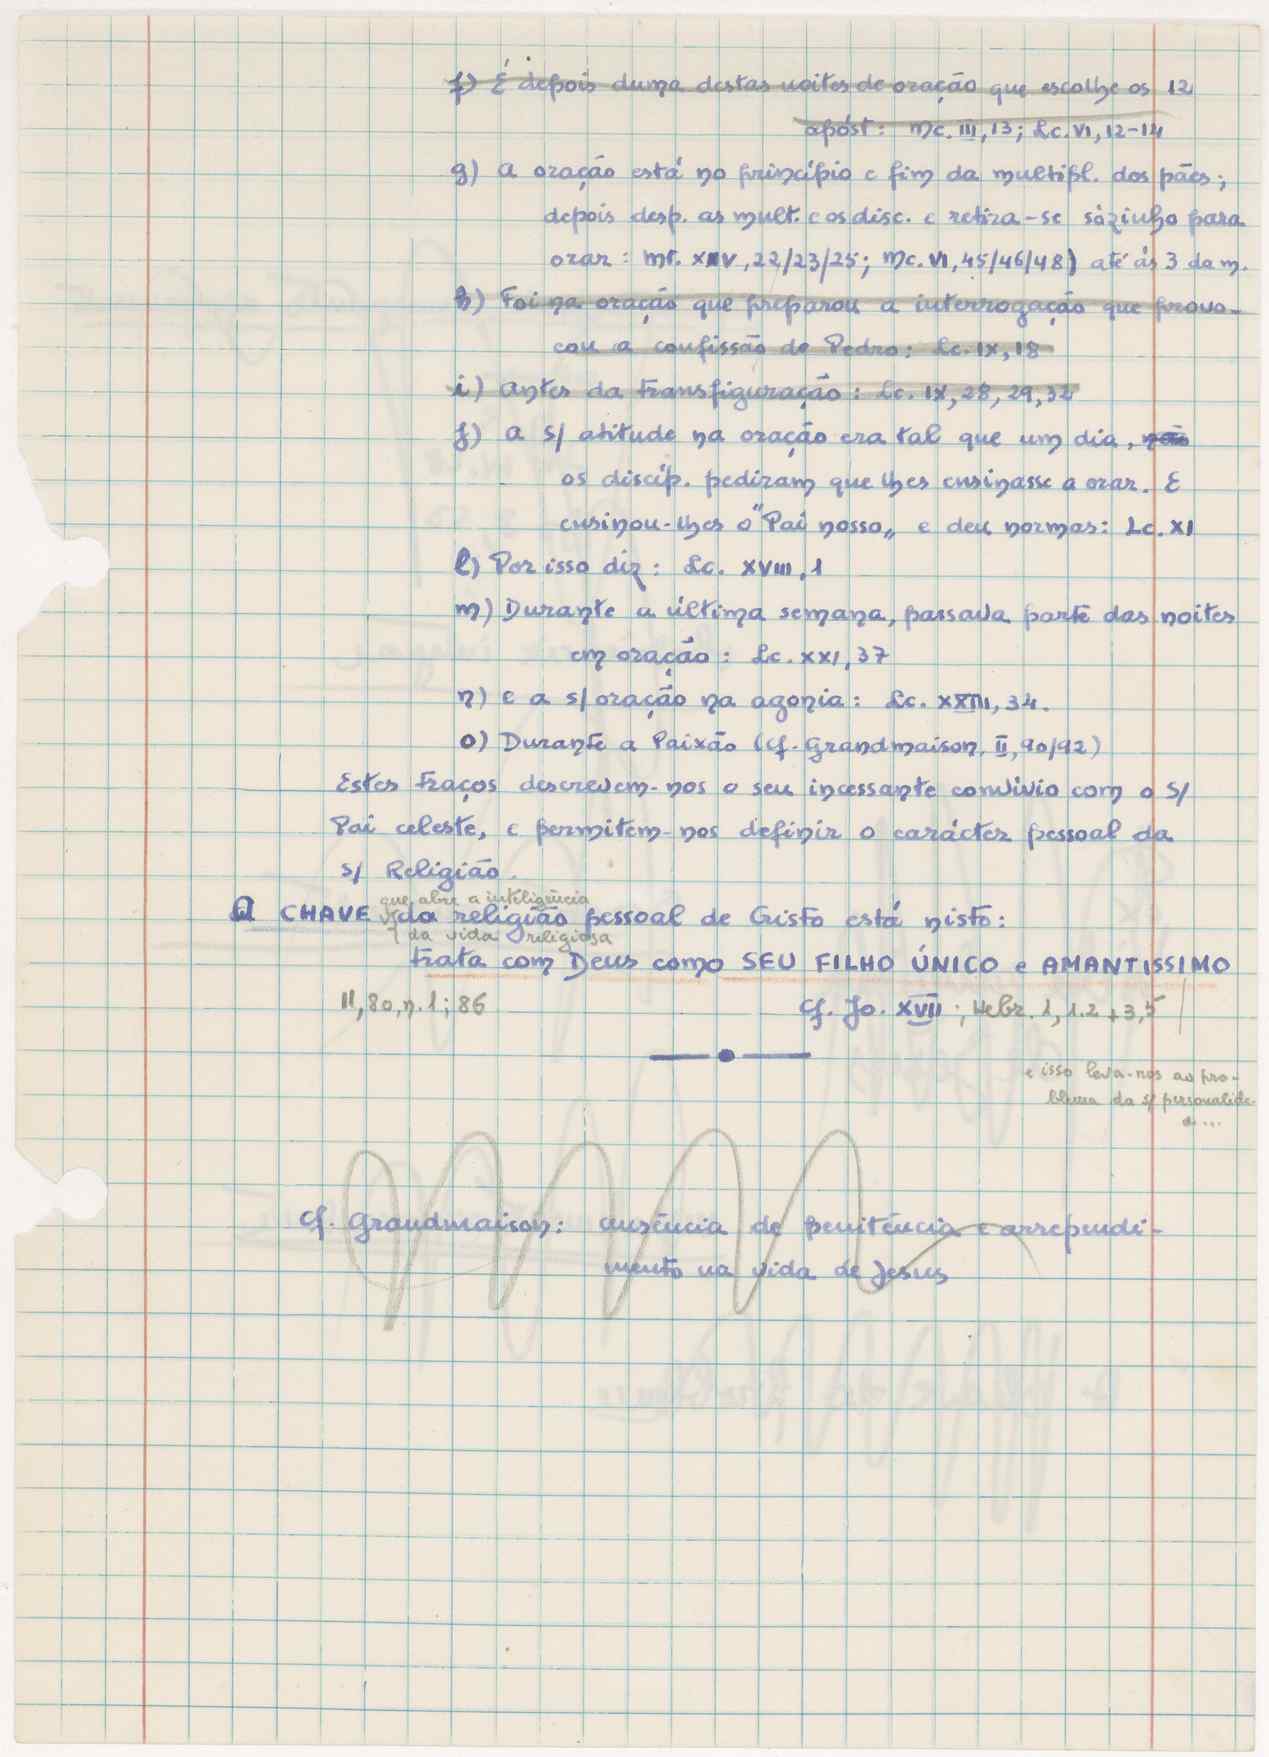 f) É depois duma destas noites de oração que escolhe os 12
apóst: Mc. III, 13; Lc. VI, 12-14
g) A oração está no princípio e fim da multipl. dos pães;
depois desp. as mult. e os disc. e retira-se sòzinho para
orar: Mt. XIV, 22/23/25; Mc. VI, 45/46/48) até às 3 da m.
h) Foi na oração que preparou a interrogação que provo-
cou a confissão de Pedro: Lc. IX, 18
i) Antes da Transfiguração: Lc. IX, 28, 29, 32
j) A s/ atitude na oração era tal que um dia, não
os discíp. pediram que lhes ensinasse a orar. E
ensinou-lhes o "Pai nosso„ e deu normas: Lc. XI
l) Por isso diz: Lc. XVIII, 1
m) Durante a última semana, passava parte das noites
em oração: Lc. XXI, 37
n) e a s/ oração na agonia: Lc. XXIII, 34.
o) Durante a Paixão (Cf. Grandmaison, II, 90/92)
Estes traços descrevem-nos o seu incessante convívio com o s/
Pai celeste, e permitem-nos definir o carácter pessoal da
s/ Religião.
que abre a inteligência
A CHAVE da religião pessoal de Cristo está nisto:
da vida religiosa
trata com Deus como SEU FILHO ÚNICO e AMANTISSIMO
II, 80, n. 1; 86 Cf. Jo. XVII; Hebr. 1, 1.2 + 3, 5
e isso leva-nos ao pro-
blema da s/ personalida-
de...
Cf. Grandmaison: ausência de penitência e arrependi-
mento na vida de Jesus